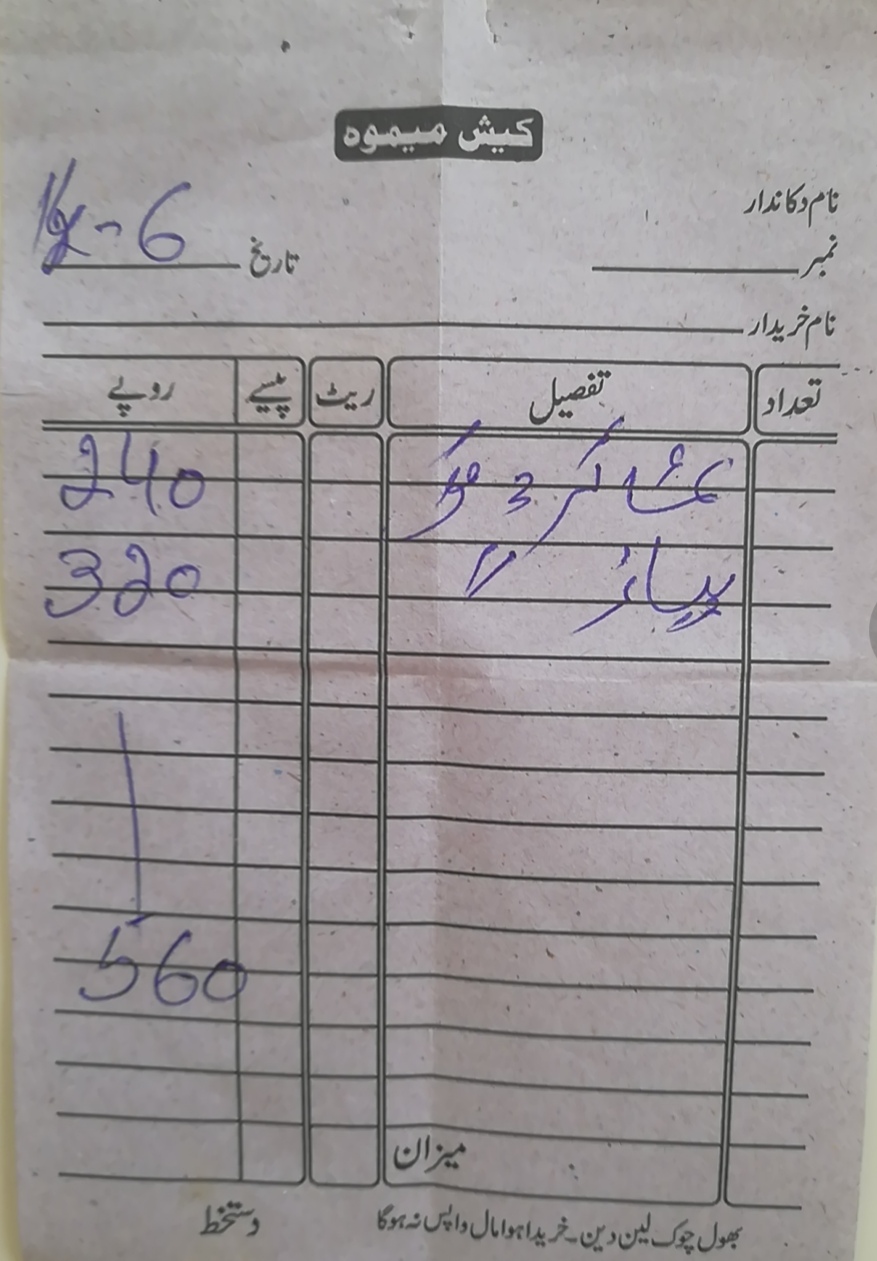 کیش میمو
نام دکاندار
نمبر
تاریخ 6
نام خریدار
تعداد تفصیل ریٹ پیسے روپے
ٹماٹر 3 کلو 240
پیاز 320
560
میزان
بھول چوک لین دین۔ خریدا ہوا مال واپس نہ ہوگا
دستخط